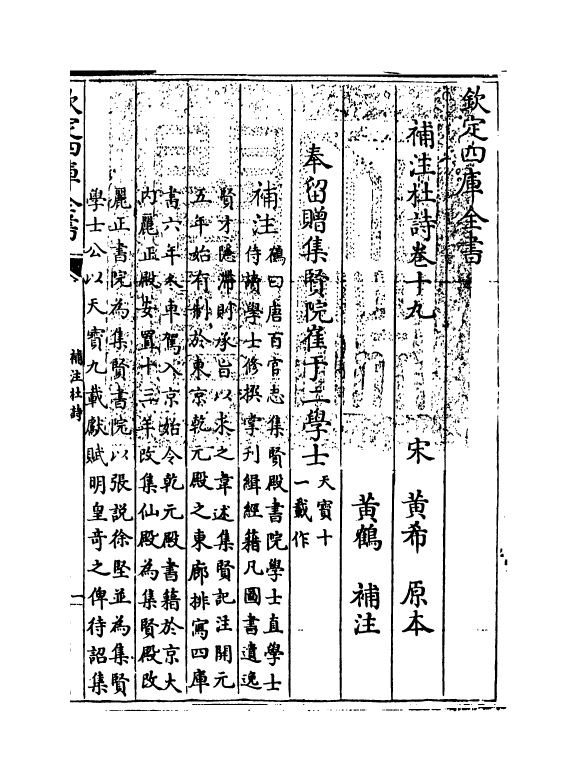 欽定四庫全書
補注杜詩卷十九
宋 黃希 原本
黃鶴 補注
奉留贈集賢院崔于二學士天寶十
一載作
補注鶴曰唐百官志集賢殿書院學士直學士
侍讀學士修撰掌刊緝經籍凡圖書遺逸
賢才隱滯則承旨以求之韋述集賢記注開元
五年始有制於東京乾元殿之東廊排寫四庫
書六年冬車駕入京始令乾元殿書籍於京大
内麗正殿安置十三年改集仙殿為集賢殿改
麗正書院為集賢書院以張說徐堅並為集賢
學士公以天寶九載獻賦明皇奇之俾待詔集
欽定四庫全書
補注杜詩
一